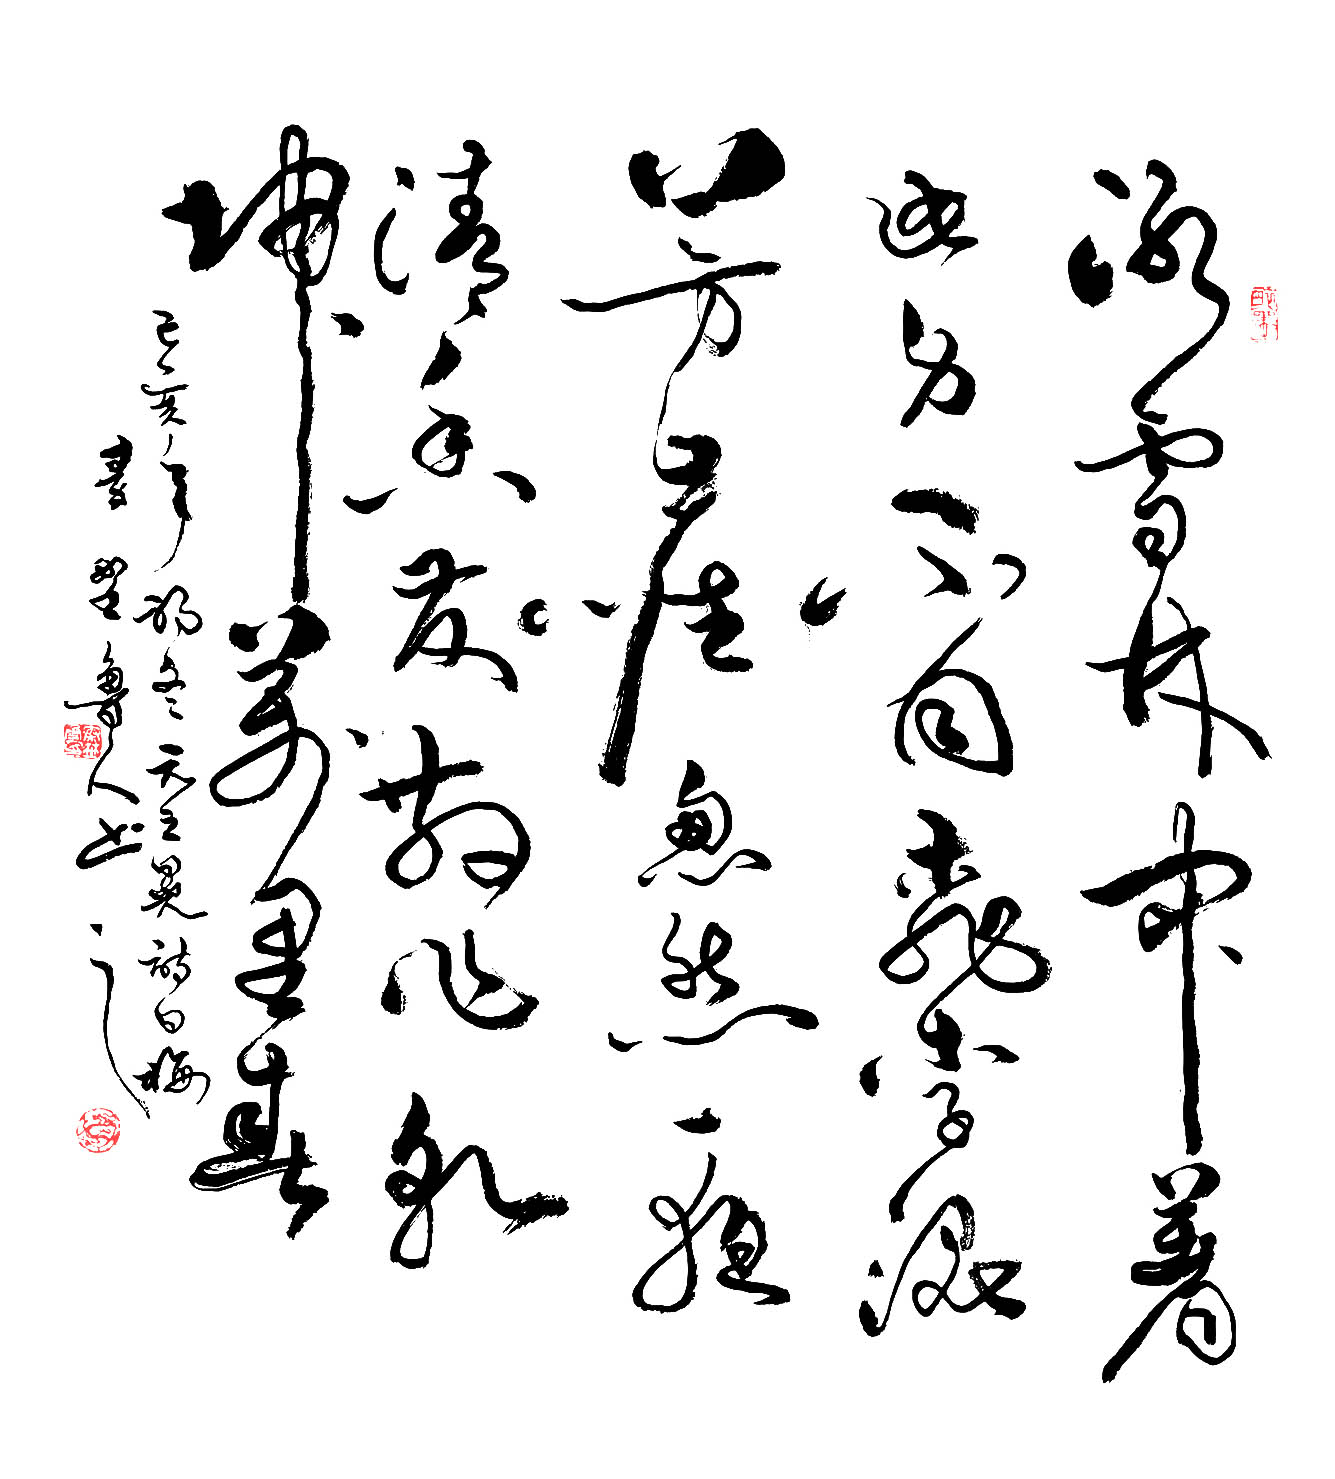 冰雪林中著
此身不同桃李混
芳塵忽然一夜
清香發散作乾
坤萬里春
己亥年初冬元王冕詩白梅
書
魯人